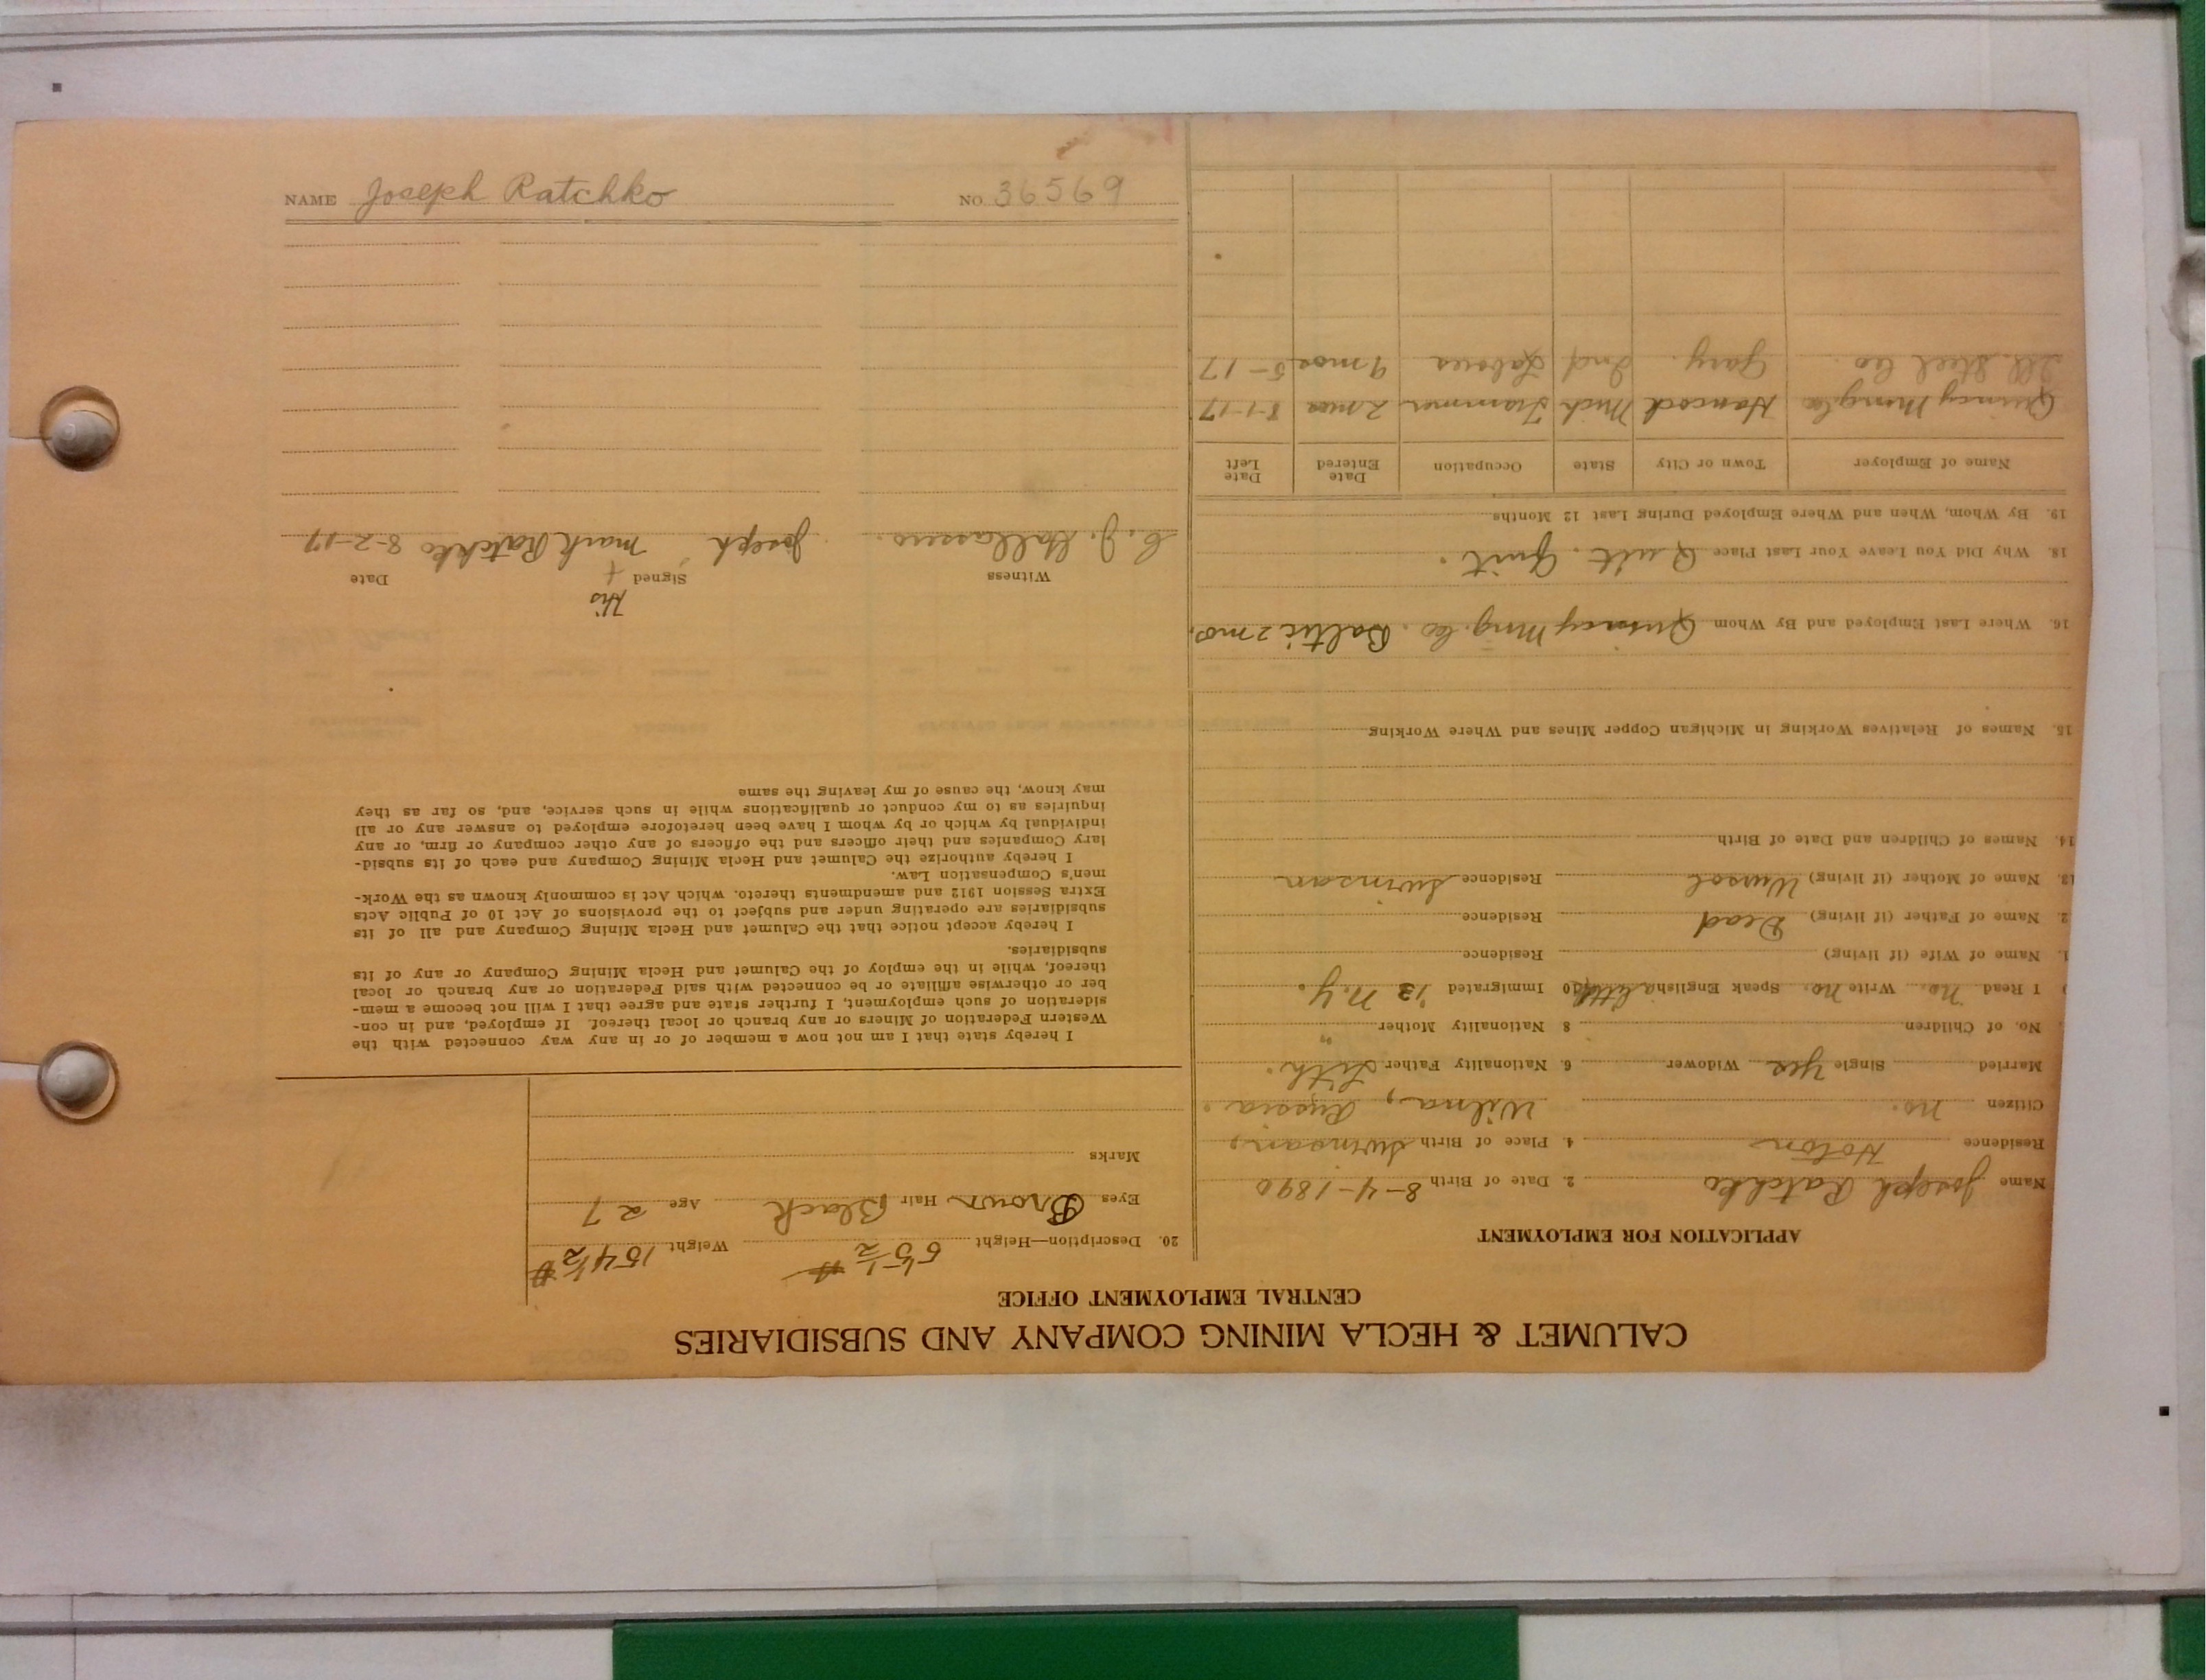 CALUMET & HECLA MINING COMPANY AND SUBSIDIARIES
CENTRAL EMPLOYMENT OFFICE
APPLICATION FOR EMPLOYMENT
Name Joseph Ratchko 2. Date of Birth 8-4-1890
Residence Holon 4. Place of Birth Swinsan,
Citizen no. Wilna, Russia.
Married Single Yes Widower 6. Nationality Father Lith.
No. of Children 8 Nationality Mother "
I Read no. Write no. Speak English a little 10 Immigrated '13 N.Y.
1. Name of Wife (if living) Residence
2. Name of Father (if living) Dead Residence
13. Name of Mother (if living) Residence Swinsan
14. Names of Children and Date of Birth
15. Names of Relatives Working in Michigan Copper Mines and Where Working
16. Where Last Employed and By Whom Quincy Mng. Co. Baltic 2 mos.
18. Why Did You Leave Your Last Place Quit.
19. By Whom, When and Where Employed During Last 12 Months
Name of Employer Town or City State Occupation Date Entered Date Left
Quincy Mng Co Hancock Mich Trammer 2 mos 8-1-17
Ill. Steel Co. Gary. Ind Laborer 9 mos 5-17
20. Description—Height 5 5½ Weight 154½ #
Eyes Brown Hair Black Age 27
Marks
I hereby state that I am not now a member of or in any way connected with the
Western Federation of Miners or any branch or local thereof. If employed, and in con-
sideration of such employment, I further state and agree that I will not become a mem-
ber or otherwise affiliate or be connected with said Federation or any branch or local
thereof, while in the employ of the Calumet and Hecla Mining Company or any of its
subsidiaries.
I hereby accept notice that the Calumet and Hecla Mining Company and all of its
subsidiaries are operating under and subject to the provisions of Act 10 of Public Acts
Extra Session 1912 and amendments thereto. which Act is commonly known as the Work-
men's Compensation Law.
I hereby authorize the Calumet and Hecla Mining Company and each of its subsid-
iary Companies and their officers and the officers of any other company or firm, or any
individual by which or by whom I have been heretofore employed to answer any or all
inquiries as to my conduct or qualifications while in such service, and, so far as they
may know, the cause of my leaving the same
His
Witness Signed + Date
C. J. Joseph mark Ratchko 8-2-17
NAME Joseph Ratchko NO. 36569